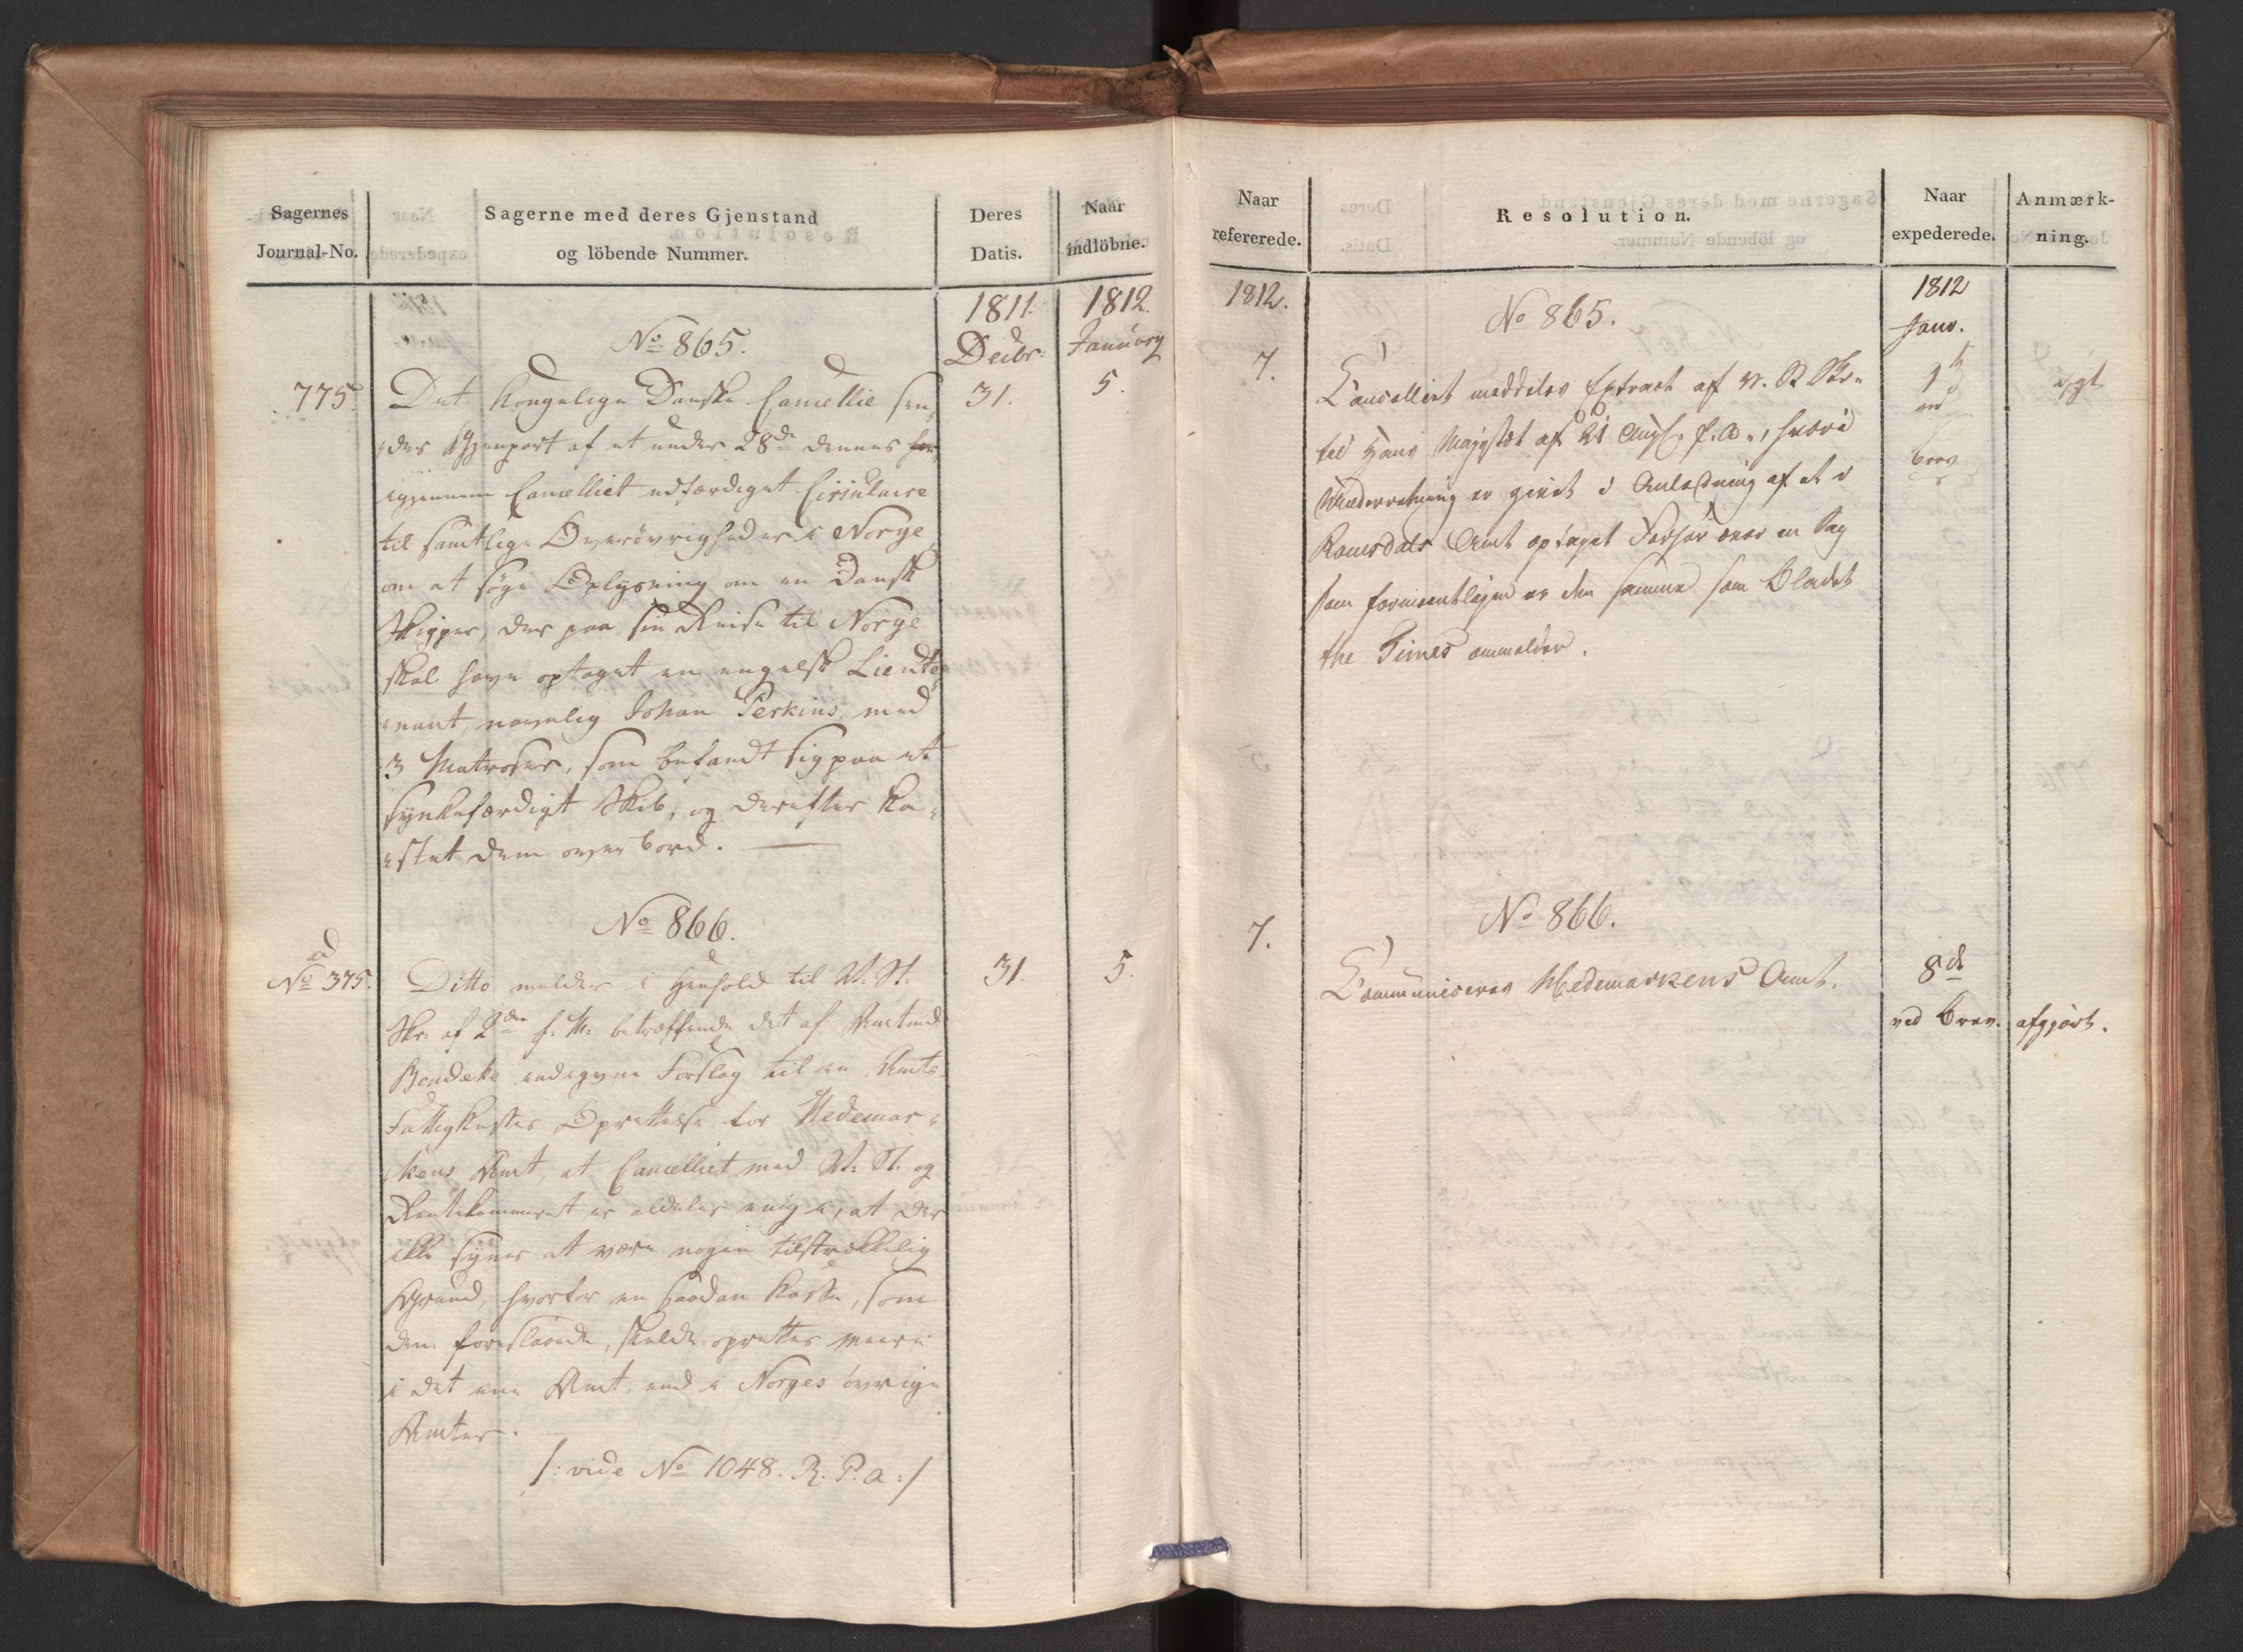 Sagernes
Journal-No.
Sagerne med deres Gjenstand
og löbende Nummer.
Deres
Datis.
Naar
indlöbne.
1811.
Decbr.
1812.
Januarij
No 865.
775. Det Kongelige Danske Cancellie sen= 31. 5.
=der Gjenpart af et under 28de dennes
igjennem Cancelliet udfærdiget Circulaire
til samtlige Overövrigheder i Norge,
om at söge Oplysning om en Dansk
Skipper, der paa sin Reise til Norge
skal have optaget en engelsk Lieute=
=nant, navnlig Johan Perkins, med
3 Matroser, som befandt sig paa et
synkefærdigt Skib, og derefter ka=
=stet dem over bord.
No 866.
ad
No 375. Ditto melder i Henhold til R. St. 31. 5.
Skr. af 2den f: M: betræffende det af Amtmd
Bendeke indgivne Forslag til en Amts
Fattigkasses Oprettelse for Hedemar=
=kens Amt, at Cancelliet med R. St. og
Rentekammeret er aldeles enig i, at der
ikke synes at være nogen tilstrækkelig
Grund, hvorfor en saadan Kasse, som
den foreslaaede, skulde oprettes meere
i det ene Amt, end i Norges övrige
Amter.
/: vide No 1048. R. P. a :/
Naar
refererede.
Resolution.
Naar
expederede.
Anmærk-
ning.
1812.
1812
Janv.
No 865.
7. Cancelliet meddeles Extract af
til Hans Majestæt af 21 Aug. f. A., hvori
Underretning er givet i Anledning af et i
brev
Romsdals Amt optaget Forhör over en Sag
som formeentligen er den samme som Bladet
the Times ommelder.
No 866.
7. Communiceres Hedemarkens Amt. 8de
ved brev. afgjort.